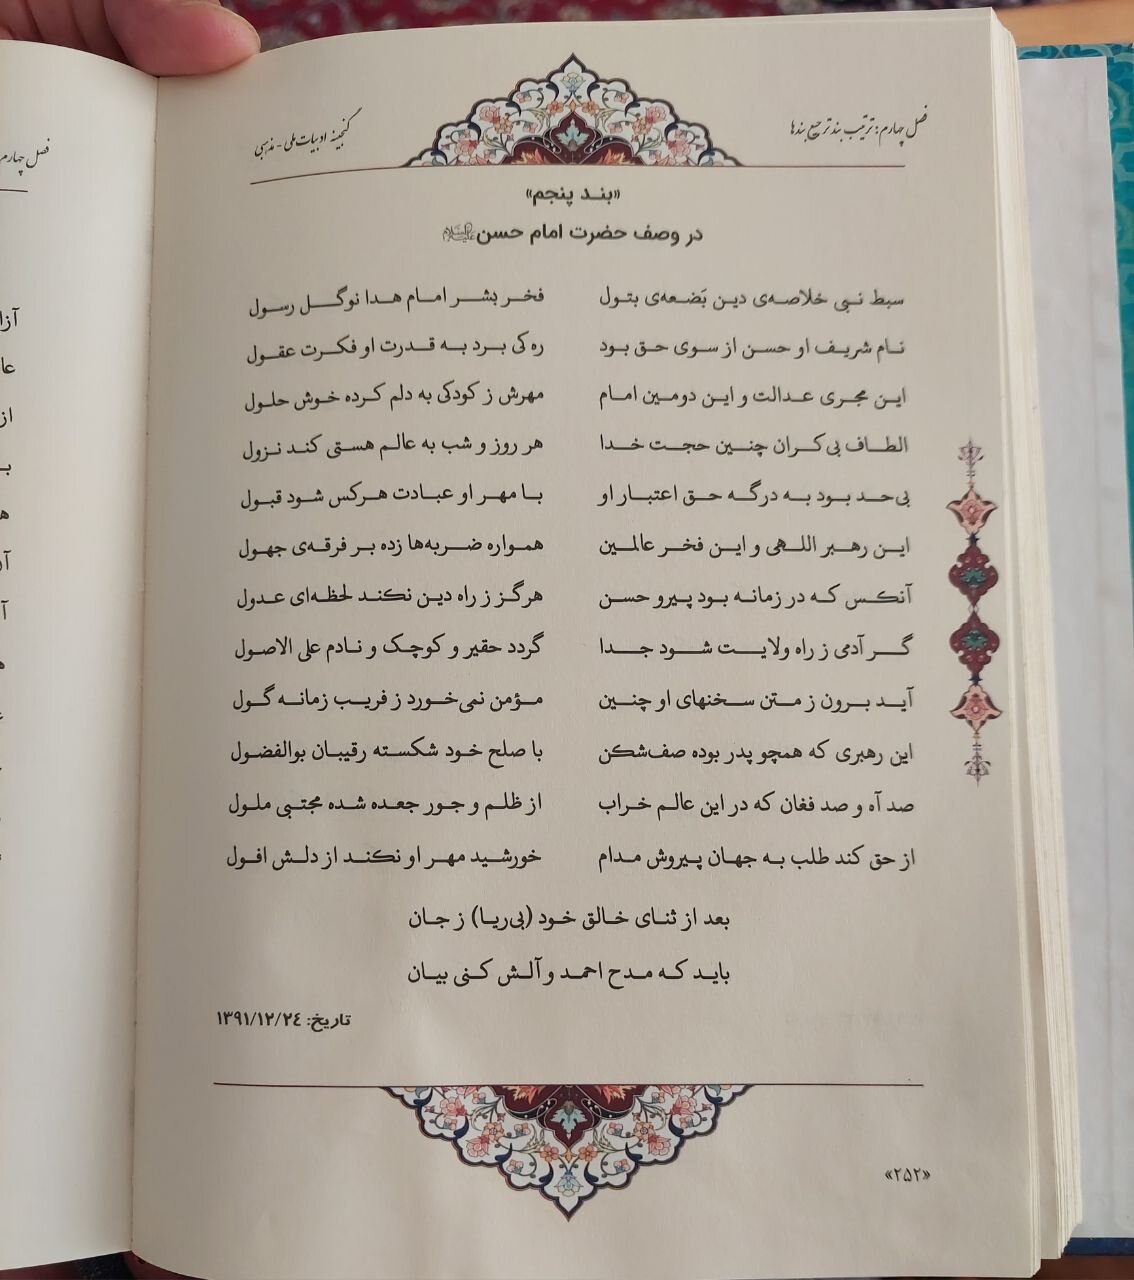 فصل چهارم: ترتیب بند ترجیع بندها
گنجینه ادبیات ملی - مذهبی
فصل چهارم
«بند پنجم»
در وصف حضرت امام حسن علیه‌السلام
سبط نبی خلاصه‌ی دین بَضعه‌ی بتول فخر بشر امام هدا نوگل رسول
نام شریف او حسن از سوی حق بود ره کی برد به قدرت او فکرت عقول
این مجری عدالت و این دومین امام مهرش ز کودکی به دلم کرده خوش حلول
الطاف بی‌کران چنین حجت خدا هر روز و شب به عالم هستی کند نزول
بی‌حد بود به درگه حق اعتبار او با مهر او عبادت هرکس شود قبول
این رهبر اللهی و این فخر عالمین همواره ضربه‌ها زده بر فرقه‌ی جهول
آنکس که در زمانه بود پیرو حسن هرگز ز راه دین نکند لحظه‌ای عدول
گر آدمی ز راه ولایت شود جدا گردد حقیر و کوچک و نادم علی الاصول
آید برون ز متن سخنهای او چنین مؤمن نمی‌خورد ز فریب زمانه گول
این رهبری که همچو پدر بوده صف‌شکن با صلح خود شکسته رقیبان بوالفضول
صد آه و صد فغان که در این عالم خراب از ظلم و جور جعده شده مجتبی ملول
از حق کند طلب به جهان پیروش مدام خورشید مهر او نکند از دلش افول
بعد از ثنای خالق خود (بی‌ریا) ز جان
باید که مدح احمد و آلش کنی بیان
تاریخ: ۱۳۹۱/۱۲/۲٤
«۲۵۲»